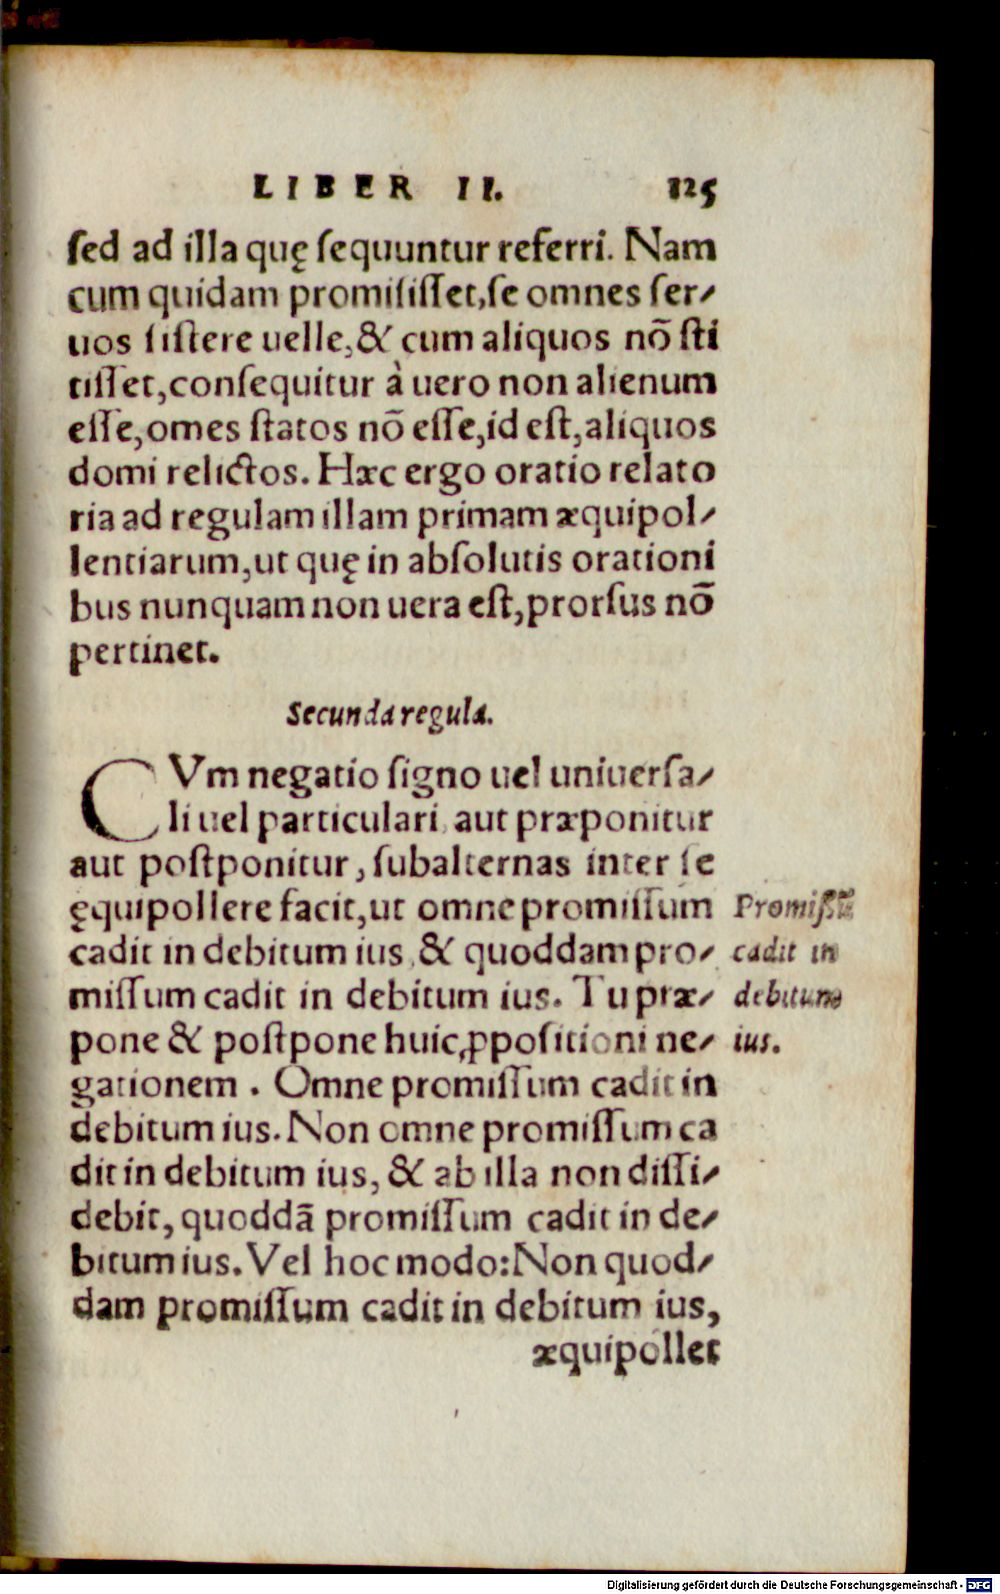 LIBER II. 125
sed ad illa quę sequuntur referri. Nam
cum quidam promisisset, se omnes ser-
uos sistere uelle, & cum aliquos nō sti
tisset, consequitur à uero non alienum
esse, omes statos nō esse, id est, aliquos
domi relictos. Hæc ergo oratio relato
ria ad regulam illam primam æquipol-
lentiarum, ut quę in absolutis orationi
bus nunquam non uera est, prorsus nō
pertinet.
Secunda regula.
CVm negatio signo uel uniuersa-
li uel particulari, aut præponitur
aut postponitur, subalternas inter se
ęquipollere facit, ut omne promissum
cadit in debitum ius, & quoddam pro-
missum cadit in debitum ius. Tu præ-
pone & postpone huic ꝓpositioni ne-
gationem. Omne promissum cadit in
debitum ius. Non omne promissum ca
dit in debitum ius, & ab illa non dissi-
debit, quoddā promissum cadit in de-
bitum ius. Vel hoc modo: Non quod-
dam promissum cadit in debitum ius,
æquipollet
Promissū
cadit in
debitum
ius.
Digitalisierung gefördert durch die Deutsche Forschungsgemeinschaft - DFG